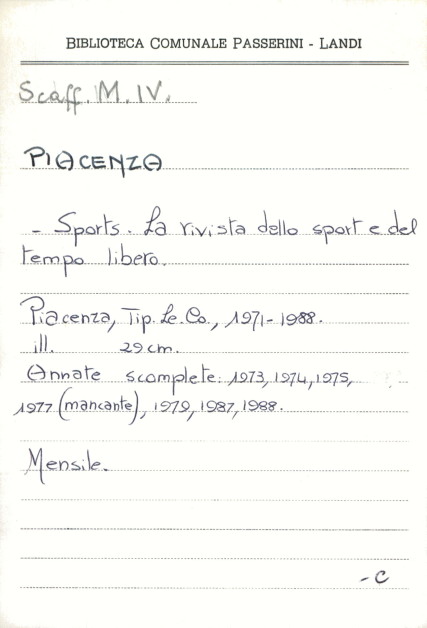 BIBLIOTECA COMUNALE PASSERINI - LANDI
Scaff. M. IV.
PIACENZA
- Sports. La rivista dello sport e del
tempo libero.
Piacenza, Tip. Le. Co., 1971-1988.
ill. 29 cm.
Annate scomplete: 1973, 1974, 1975,
1977 (mancante), 1979, 1987, 1988.
Mensile.
- C